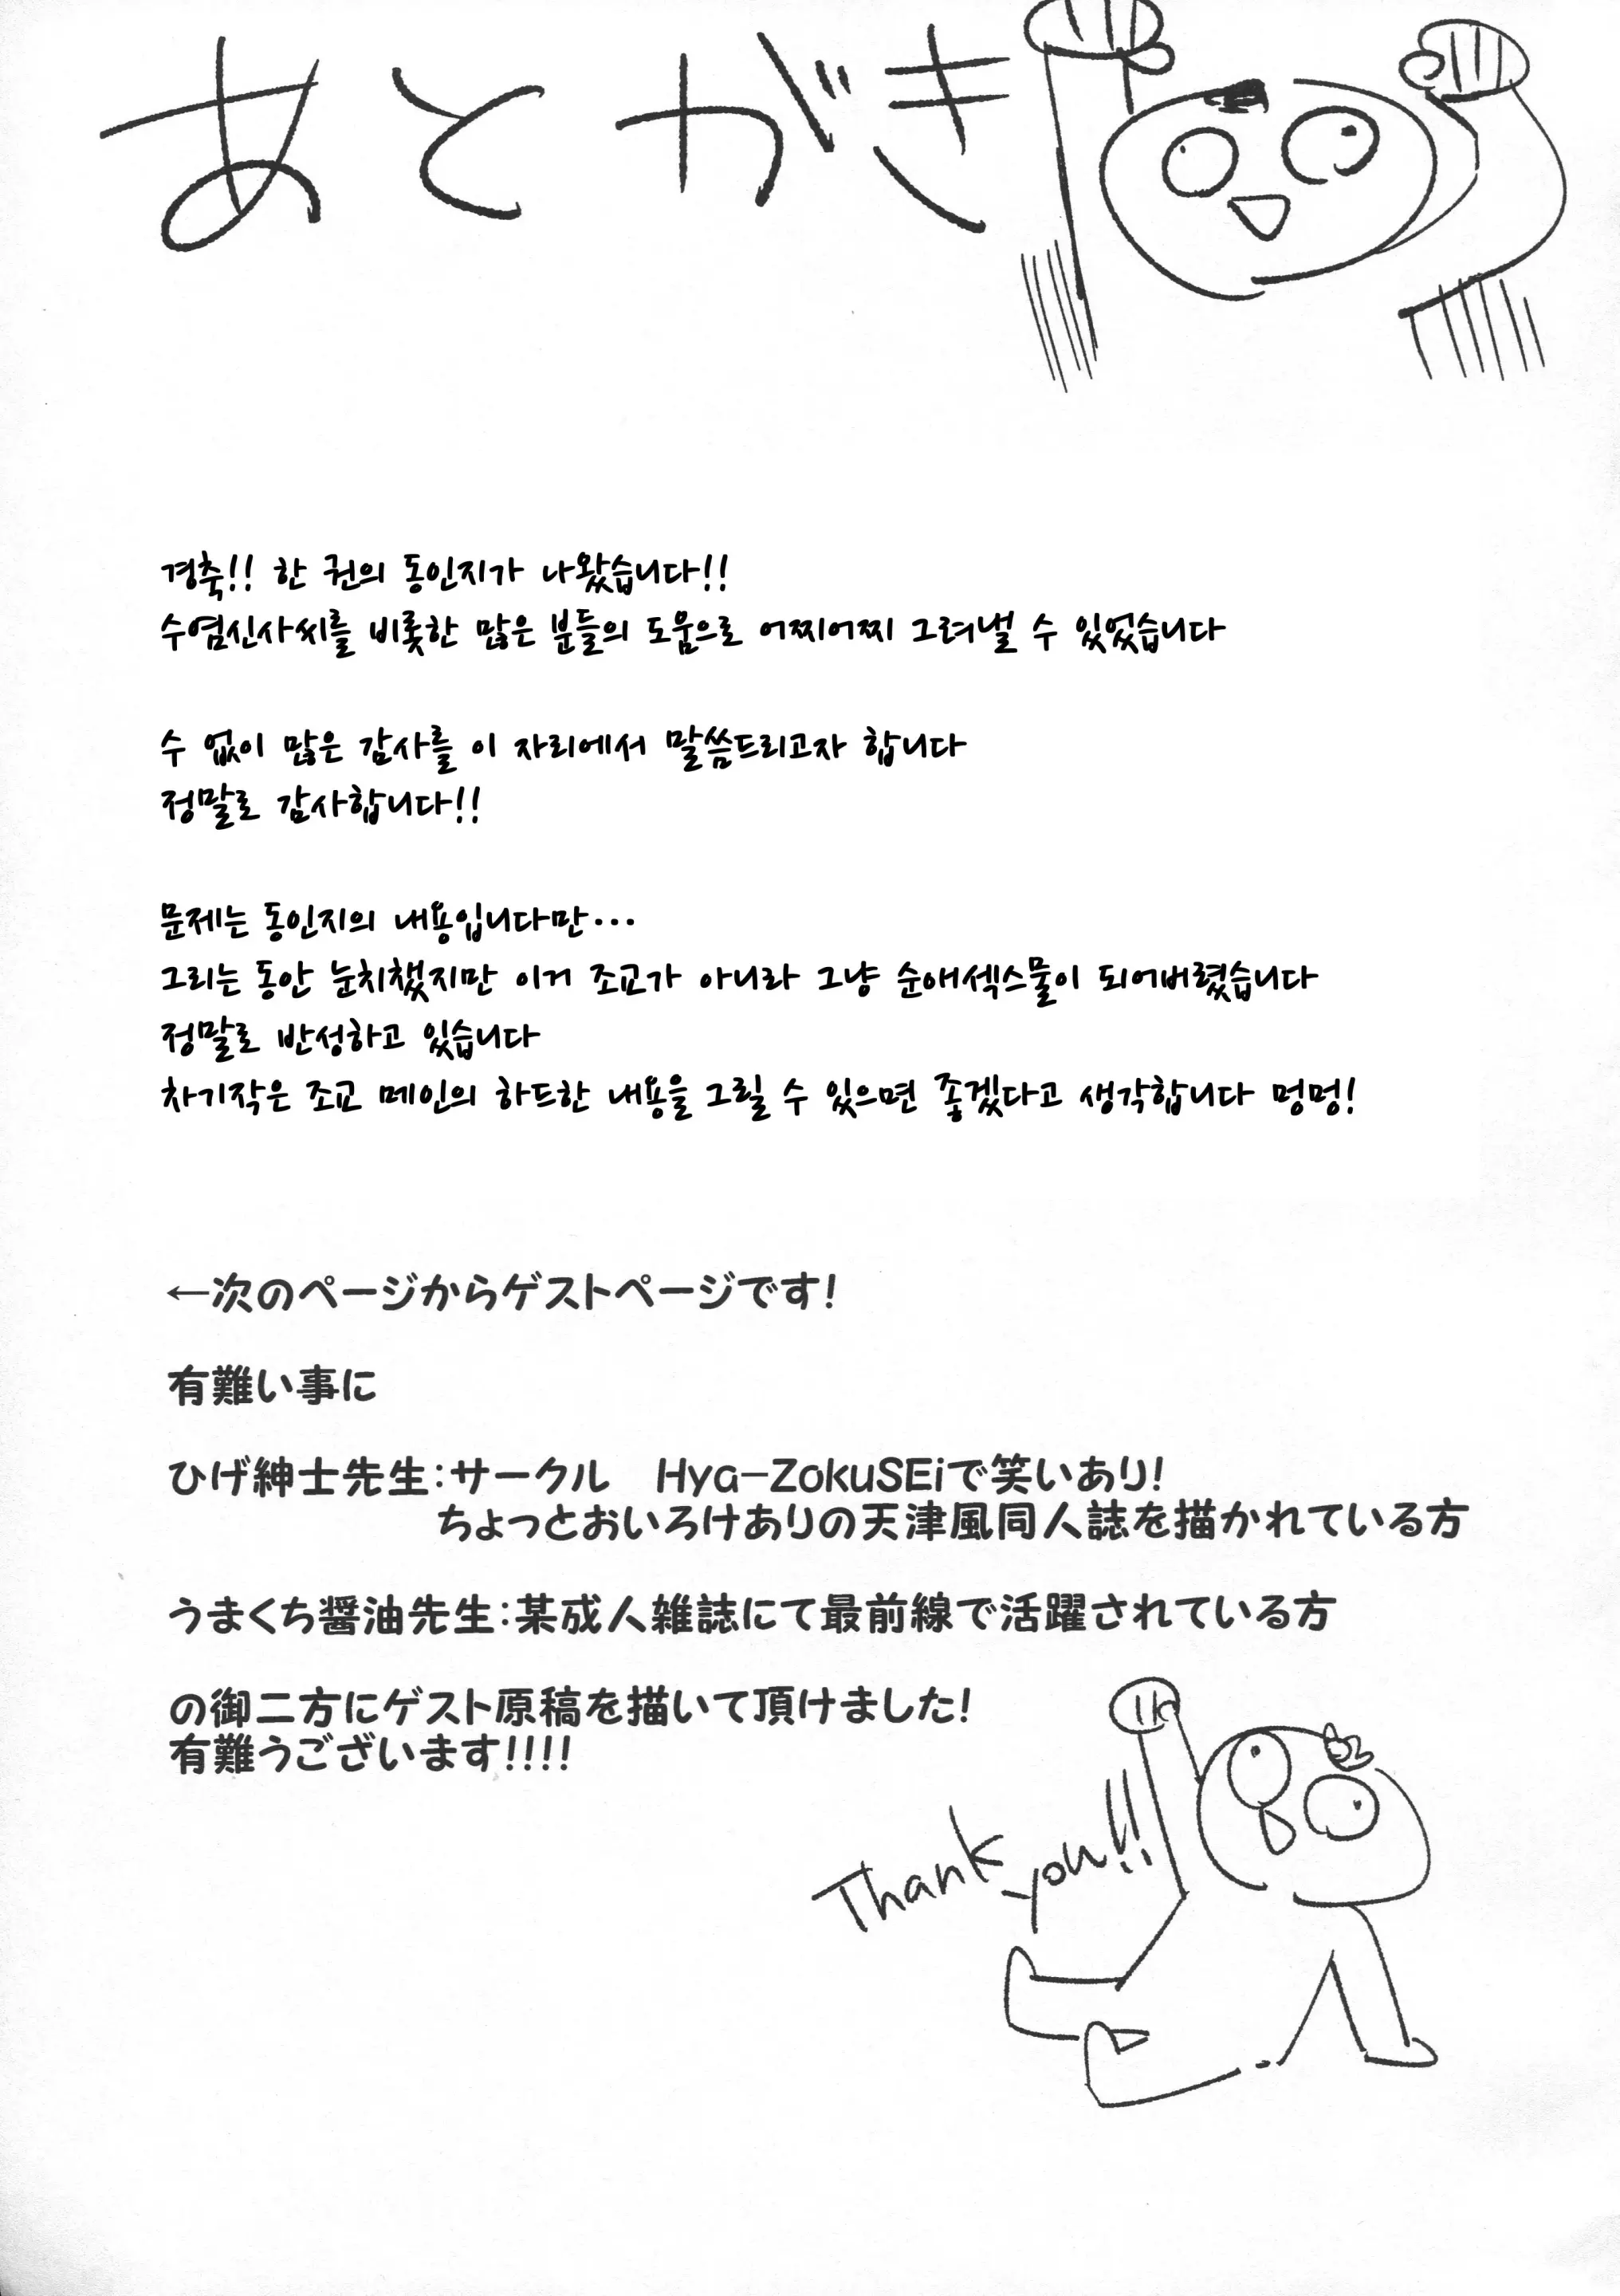 あとがき
경축!! 한 권의 동인지가 나왔습니다!!
수염신사씨를 비롯한 많은 분들의 도움으로 어찌어찌 그려낼 수 있었습니다
수 없이 많은 감사를 이 자리에서 말씀드리고자 합니다
정말로 감사합니다!!
문제는 동인지의 내용입니다만...
그리는 동안 눈치챘지만 이거 조교가 아니라 그냥 순애섹스물이 되어버렸습니다
정말로 반성하고 있습니다
차기작은 조교 메인의 하드한 내용을 그릴 수 있으면 좋겠다고 생각합니다 멍멍!
←次のページからゲストページです!
有難い事に
ひげ紳士先生:サークル　Hya-ZokuSEiで笑いあり!
ちょっとおいろけありの天津風同人誌を描かれている方
うまくち醤油先生:某成人雑誌にて最前線で活躍されている方
の御二方にゲスト原稿を描いて頂けました!
有難うございます!!!!
Thank you!!